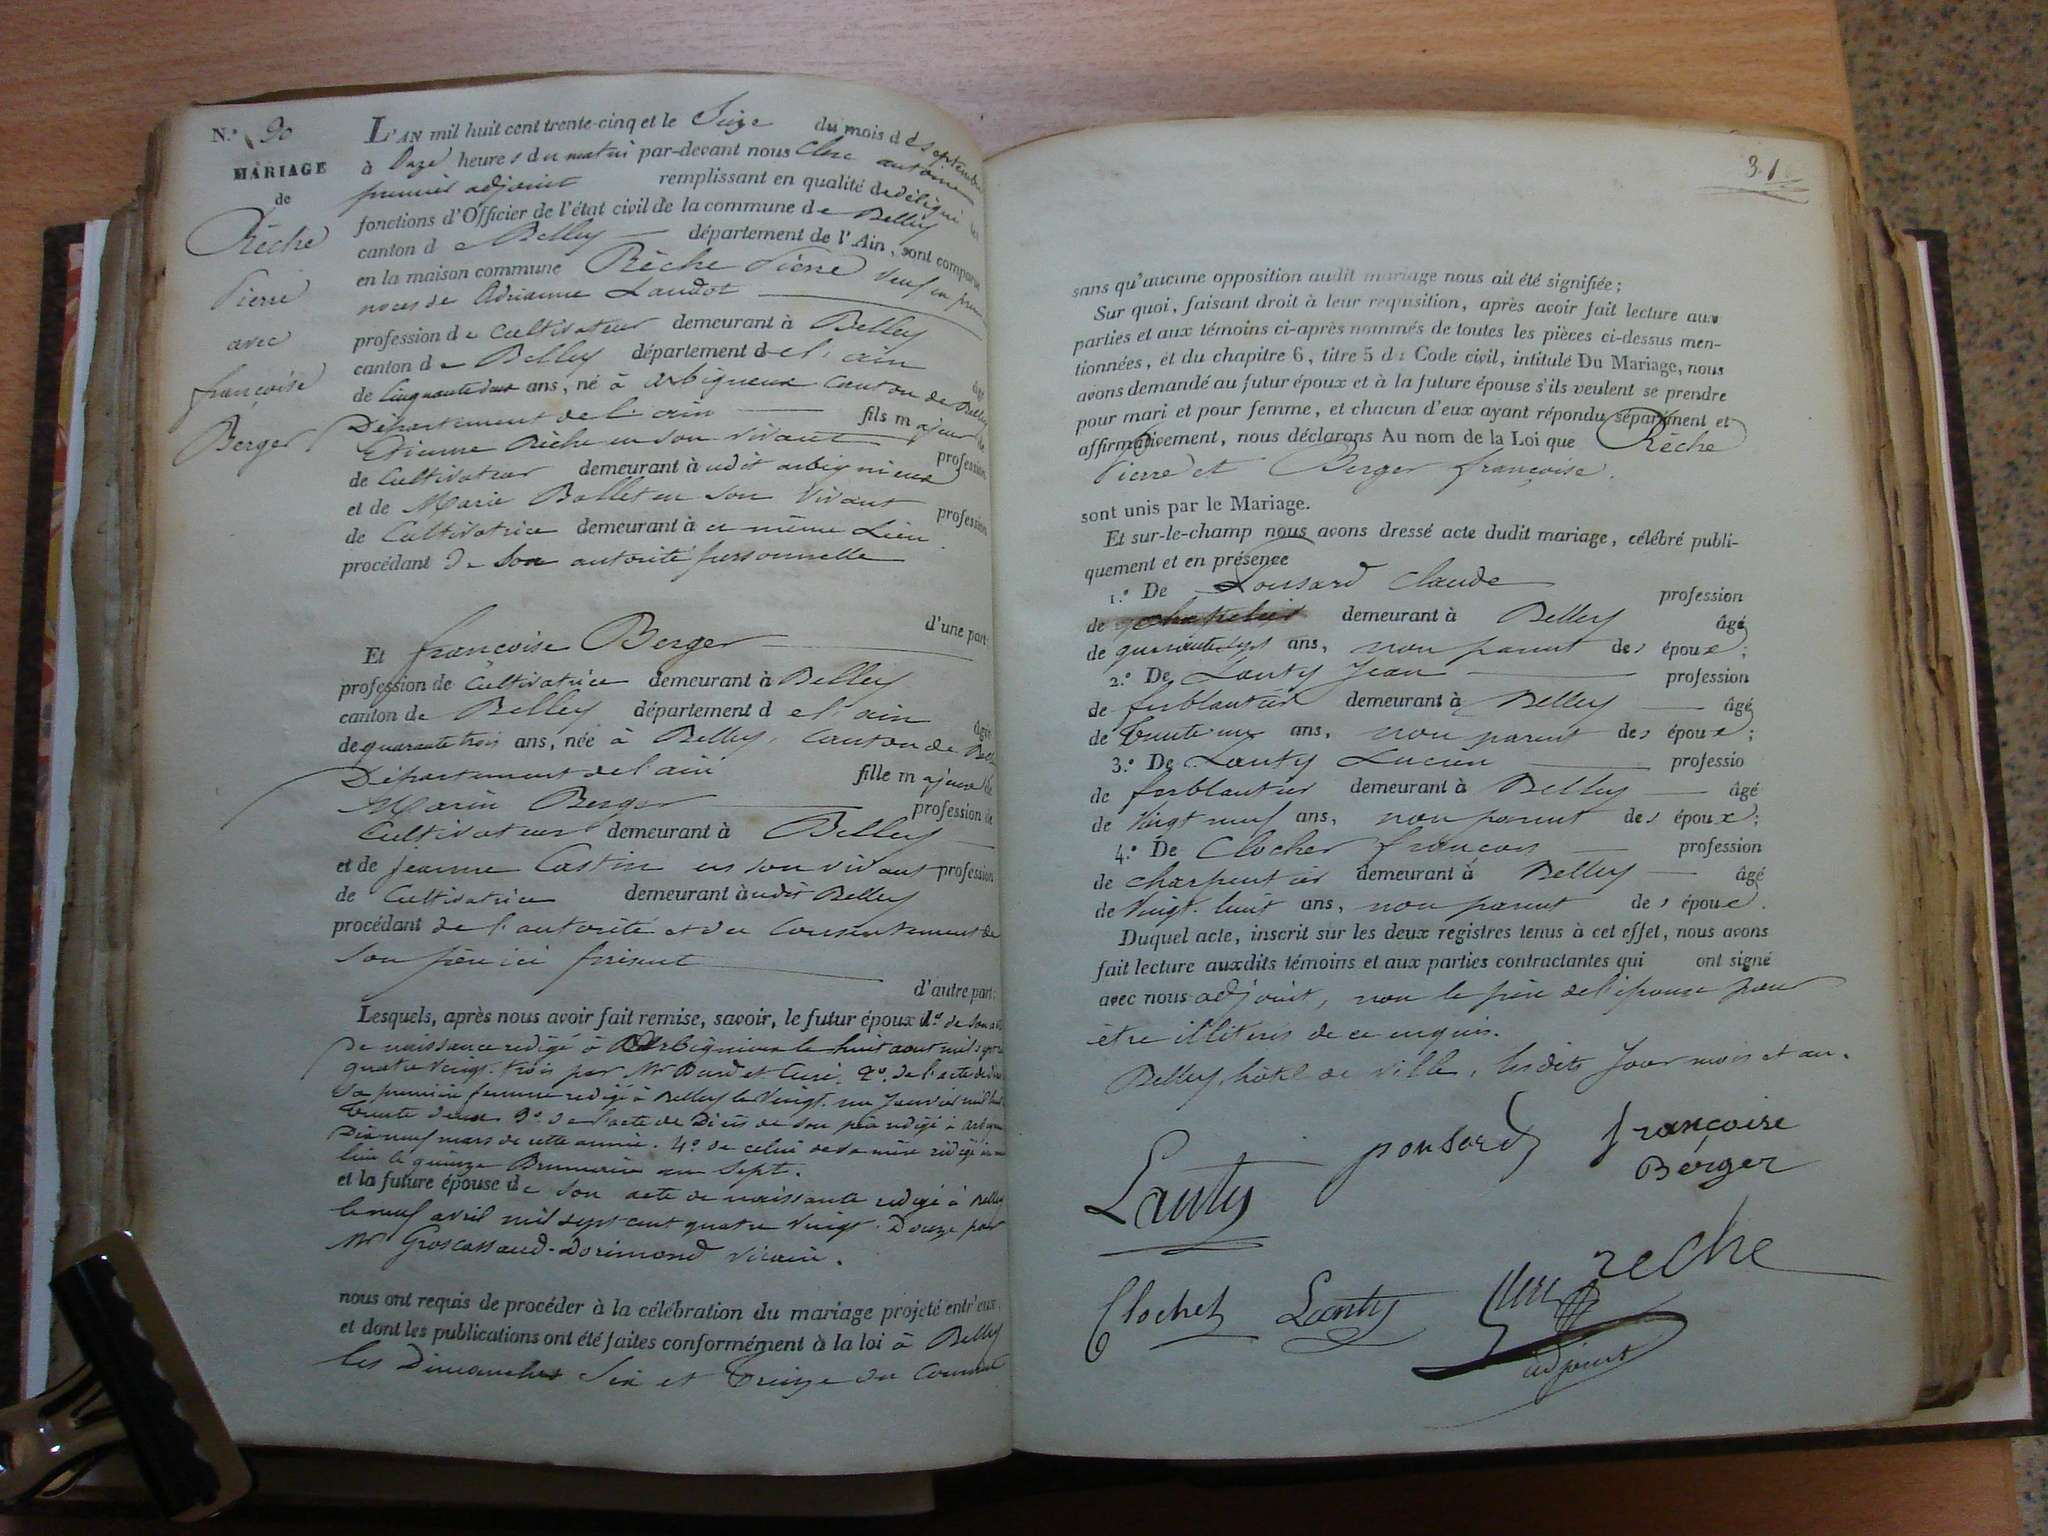 N.° 30
MARIAGE
de
Rêche
Pierre
avec
françoise
Berger
L'AN mil huit cent trente-cinq et le Seize du mois de septembre
à Onze heures du matin par-devant nous Clerc antoine
premier adjoint remplissant en qualité de délégué les
fonctions d'Officier de l'état civil de la commune de Belley
canton de Belley département de l'Ain, sont comparus
en la maison commune Rêche Pierre Veuf en premières
noces de Adrianne Landot
profession de Cultivateur demeurant à Belley
canton de Belley département de l'ain âgé
de Cinquante deux ans, né à arbignieux Canton de Belley
Département de l'ain fils majeur de
Etienne Rêche en son vivant profession
de Cultivateur demeurant à udit arbignieux
et de Marie Ballet en son Vivant profession
de Cultivatrice demeurant à ce même Lieu
procédant de son autorité personnelle
d'une part
Et françoise Berger
profession de Cultivatrice demeurant à Belley
canton de Belley département de l'ain âgée
de quarante trois ans, née à Belley, Canton de Belley
Département de l'ain fille majeure de
Marin Berger profession de
Cultivateur demeurant à Belley
et de jeanne Castin en son vivant profession
de Cultivatrice demeurant à udit Belley
procédant de l'autorité et du Consentement de
son père ici présent
d'autre part;
Lesquels, après nous avoir fait remise, savoir, le futur époux 1° de son acte
de naissance redigé à Arbignieux le huit aout mil sept cent
quatre Vingt. trois par Mr Bardet Curé. 2°. de l'acte de décès de
sa première femme redigé à Belley le Vingt. un Janvier mil huit cent
trente deux 3° de l'acte de Décès de son père redigé à arbignieux
Dix neuf mars de cette année. 4° de celui de sa mère rédigé en même
lieu le quinze Brumaire an Sept.
et la future épouse de son acte de naissance redigé à Belley
le neuf avril mil sept cent quatre Vingt. Douze par
Mr Groscassand-Dorimond Vicaire.
nous ont requis de procéder à la célébration du mariage projeté entr'eux,
et dont les publications ont été faites conformément à la loi à Belley
les Dimanches Six et Treize du Courant
31
sans qu'aucune opposition audit mariage nous ait été signifiée;
Sur quoi, faisant droit à leur requisition, après avoir fait lecture aux
parties et aux témoins ci-après nommés de toutes les pièces ci-dessus men-
tionnées, et du chapitre 6, titre 5 du Code civil, intitulé Du Mariage, nous
avons demandé au futur époux et à la future épouse s'ils veulent se prendre
pour mari et pour femme, et chacun d'eux ayant répondu séparément et
affirmativement, nous déclarons Au nom de la Loi que Rêche
Pierre et Berger françoise.
sont unis par le Mariage.
Et sur-le-champ nous avons dressé acte dudit mariage, célébré publi-
quement et en présence
1.° De Ponsard Claude profession
de demeurant à Belley âgé
de ans, non parent des époux;
2.° De Lanty Jean profession
de ferblantier demeurant à Belley âgé
de trente un ans, non parent des époux;
3.° De Lanty Lucien professio
de ferblantier demeurant à Belley âgé
de Vingt neuf ans, non parent des époux;
4.° De Clochet françois profession
de charpentier demeurant à Belley âgé
de Vingt. huit ans, non parent des époux.
Duquel acte, inscrit sur les deux registres tenus à cet effet, nous avons
fait lecture auxdits témoins et aux parties contractantes qui ont signé
avec nous adjoint, non le père de l'épouse pour
être illiteris de ce enquis.
Belley, hôtel de Ville, lesdits Jour mois et an.
Lanty ponsard françoise
Berger
Clochet Lanty Clerc reche
adjoint